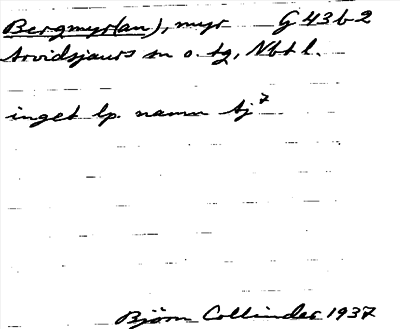 Bergmyr(an), myr G 43 b 2
Arvidsjaurs sn o. tg, Nbtl.
inget lp. namn Aj 7
Björn Collinder 1937